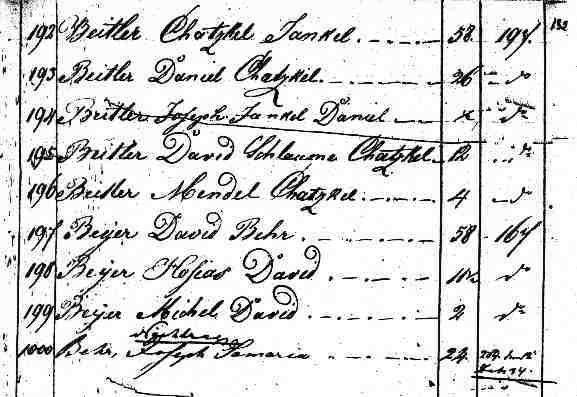 192 Beitler Chatzkel Jankel. 58. 197. 132
193 Beitler Daniel Chatzkel. 26 do
194 Beitler Joseph Jankel Daniel do
195 Beitler David Schlaume Chatzkel 12 do
196 Beitler Mendel Chatzkel. 4 do
197 Beyer David Behr. 58 167
198 Beyer Hosias David do
199 Beyer Michel David. 2 do
1000 Behr, Joseph Samaria 22